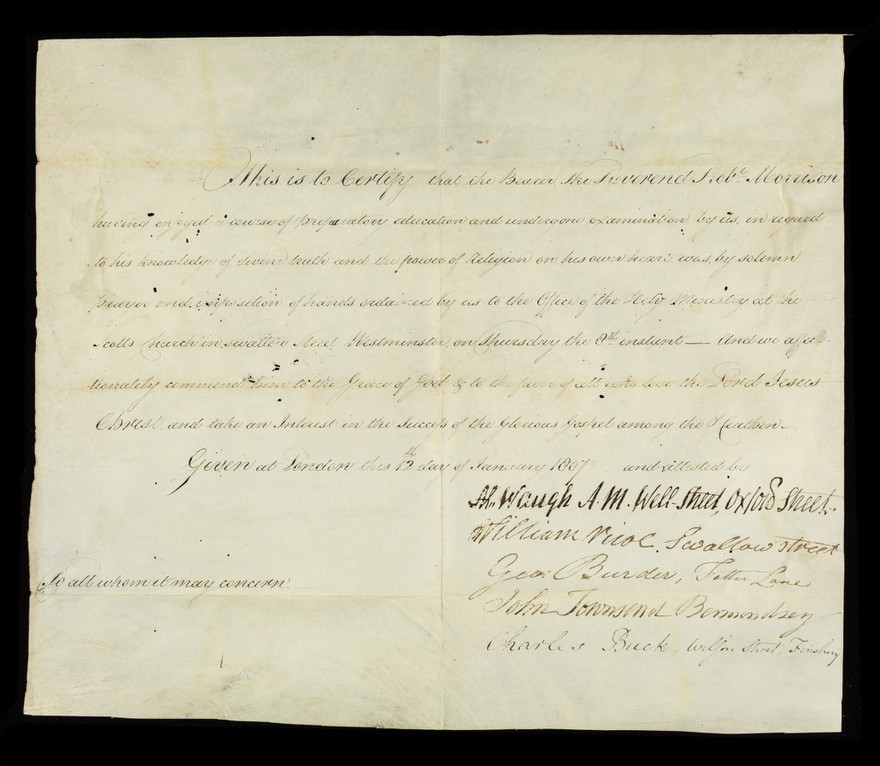 This is to Certify that the Bearer the Reverend Robt. Morrison
having enjoyed a course of preparatory education and undergone examination by us, in regard
to his knowledge of divine truth and the power of Religion on his own heart was, by solemn
prayer and imposition of hands ordained by us to the Office of the Holy Ministry at the
Scotts Church in Swallow Street Westminster, on Thursday the 8th. instant — And we affec-
tionately commend him to the Grace of God & to the favor of all who love the Lord Jesus
Christ, and take an Interest in the Success of the Glorious Gospel among the Heathen.
Given at London this 12th day of January 1807 and attested by
Al. Waugh A.M. Well-Street, Oxford Street.
William Nicol. Swallow street
Geo: Burder, Fetter Lane
John Townsend Bermondsey
To all whom it may concern
Charles Buck, Wilson Street, Finsbury